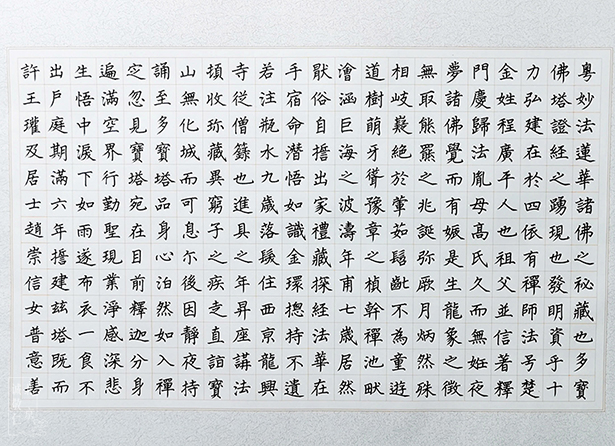 粵妙法蓮華諸佛之秘藏也多寶
佛塔證經之踴現也發明資乎十
力弘建在於四依有禪師法號楚
金姓程廣平人也祖父並信著釋
門慶歸法胤母高氏久而無姙夜
夢諸佛覺而有娠是生龍象之徵
無取熊羆之兆誕弥厥月炳然殊
相岐嶷絕於葷茹髫齔不為童遊
道樹萌牙聳豫章之楨幹禪池畎
澮涵巨海之波濤年甫七歲居然
厭俗自誓出家禮藏探經法華在
手宿命潛悟如識金環揔持不遺
若注瓶水九歲落髮住西京龍興
寺從僧籙也進具之年昇座講法
頃收珎藏異窮子之疾走直詣寶
山無化城而可息尔後因靜夜持
誦至多寶塔品身心泊然如入禪
定忽見寶塔宛在目前釋迦分身
遍滿空界行勤聖現業淨感深悲
生悟中淚下如雨遂布衣一食不
出戶庭期滿六年誓建茲塔既而
許王瓘及居士趙崇信女普意善